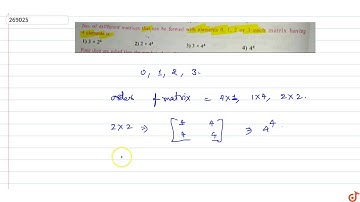 269025
No. of different matrices that can be formed with elements 0, 1, 2 or 3 each matrix having
4 elements is
1) 3 × 2⁴ 2) 2 × 4⁴ 3) 3 × 4⁴ 4) 4⁴
0, 1, 2, 3.
order of matrix = 4×1, 1×4, 2×2.
2×2 ⇒ [ 4 4 ⇒ 4⁴.
4 4 ]
doubtnut